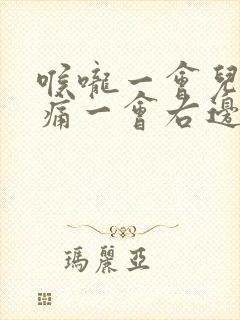 喉嚨一會兒
痛一會右邊
瑪麗亞